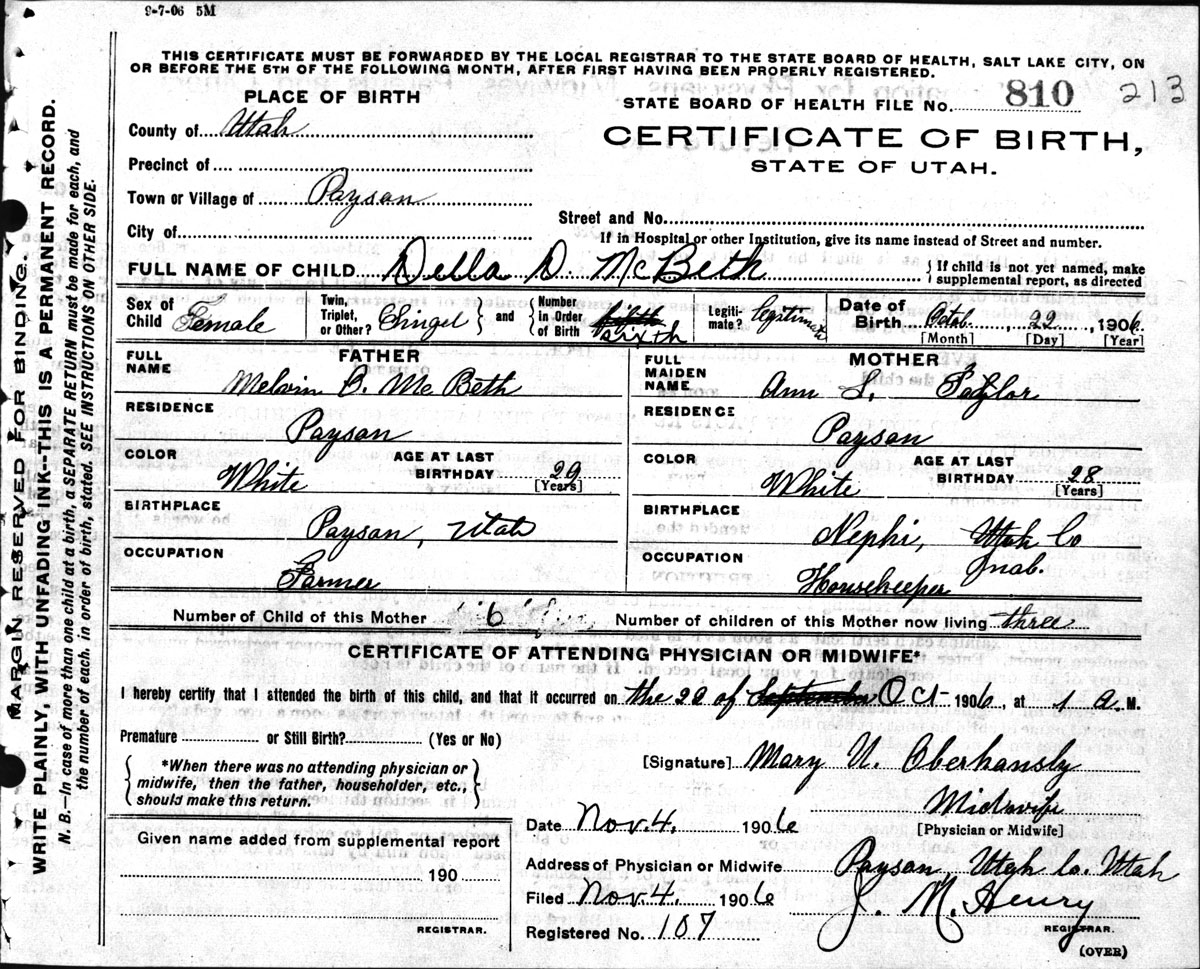 9-7-06 5M
THIS CERTIFICATE MUST BE FORWARDED BY THE LOCAL REGISTRAR TO THE STATE BOARD OF HEALTH, SALT LAKE CITY, ON
OR BEFORE THE 5TH OF THE FOLLOWING MONTH, AFTER FIRST HAVING BEEN PROPERLY REGISTERED.
PLACE OF BIRTH
STATE BOARD OF HEALTH FILE No. 810 213
County of Utah
CERTIFICATE OF BIRTH,
STATE OF UTAH.
Precinct of
Town or Village of Payson
Street and No.
City of
If in Hospital or other Institution, give its name instead of Street and number.
FULL NAME OF CHILD Della D. McBeth
If child is not yet named, make
supplemental report, as directed
Sex of Child Female
Twin, Triplet, or Other? Singel and Number in Order of Birth fifth sixth
Legiti-mate? legitimate
Date of Birth Octob 22, 1906
[Month] [Day] [Year]
FATHER
FULL NAME Melvin B. Mc Beth
RESIDENCE
Payson
COLOR White
AGE AT LAST BIRTHDAY 29
[Years]
BIRTHPLACE
Payson, Utah
OCCUPATION
Farmer
MOTHER
FULL MAIDEN NAME Ann L. Taylor
RESIDENCE
Payson
COLOR White
AGE AT LAST BIRTHDAY 28
[Years]
BIRTHPLACE
Nephi, Utah Co
OCCUPATION
Housekeeper
Number of Child of this Mother 6 Number of children of this Mother now living three
CERTIFICATE OF ATTENDING PHYSICIAN OR MIDWIFE*
I hereby certify that I attended the birth of this child, and that it occurred on the 22 of September Oct 1906, at 1 A. M.
Premature or Still Birth? (Yes or No)
*When there was no attending physician or
midwife, then the father, householder, etc.,
should make this return.
[Signature] Mary U. Oberhansly
Midwife
[Physician or Midwife]
Date Nov. 4. 1906
Given name added from supplemental report
190
REGISTRAR.
Address of Physician or Midwife Payson, Utah Co. Utah
Filed Nov. 4. 1906 J. M. Henry
REGISTRAR.
Registered No. 107
(OVER)
MARGIN RESERVED FOR BINDING.
WRITE PLAINLY, WITH UNFADING INK--THIS IS A PERMANENT RECORD.
N. B.—In case of more than one child at a birth, a SEPARATE RETURN must be made for each, and
the number of each, in order of birth, stated. SEE INSTRUCTIONS ON OTHER SIDE.